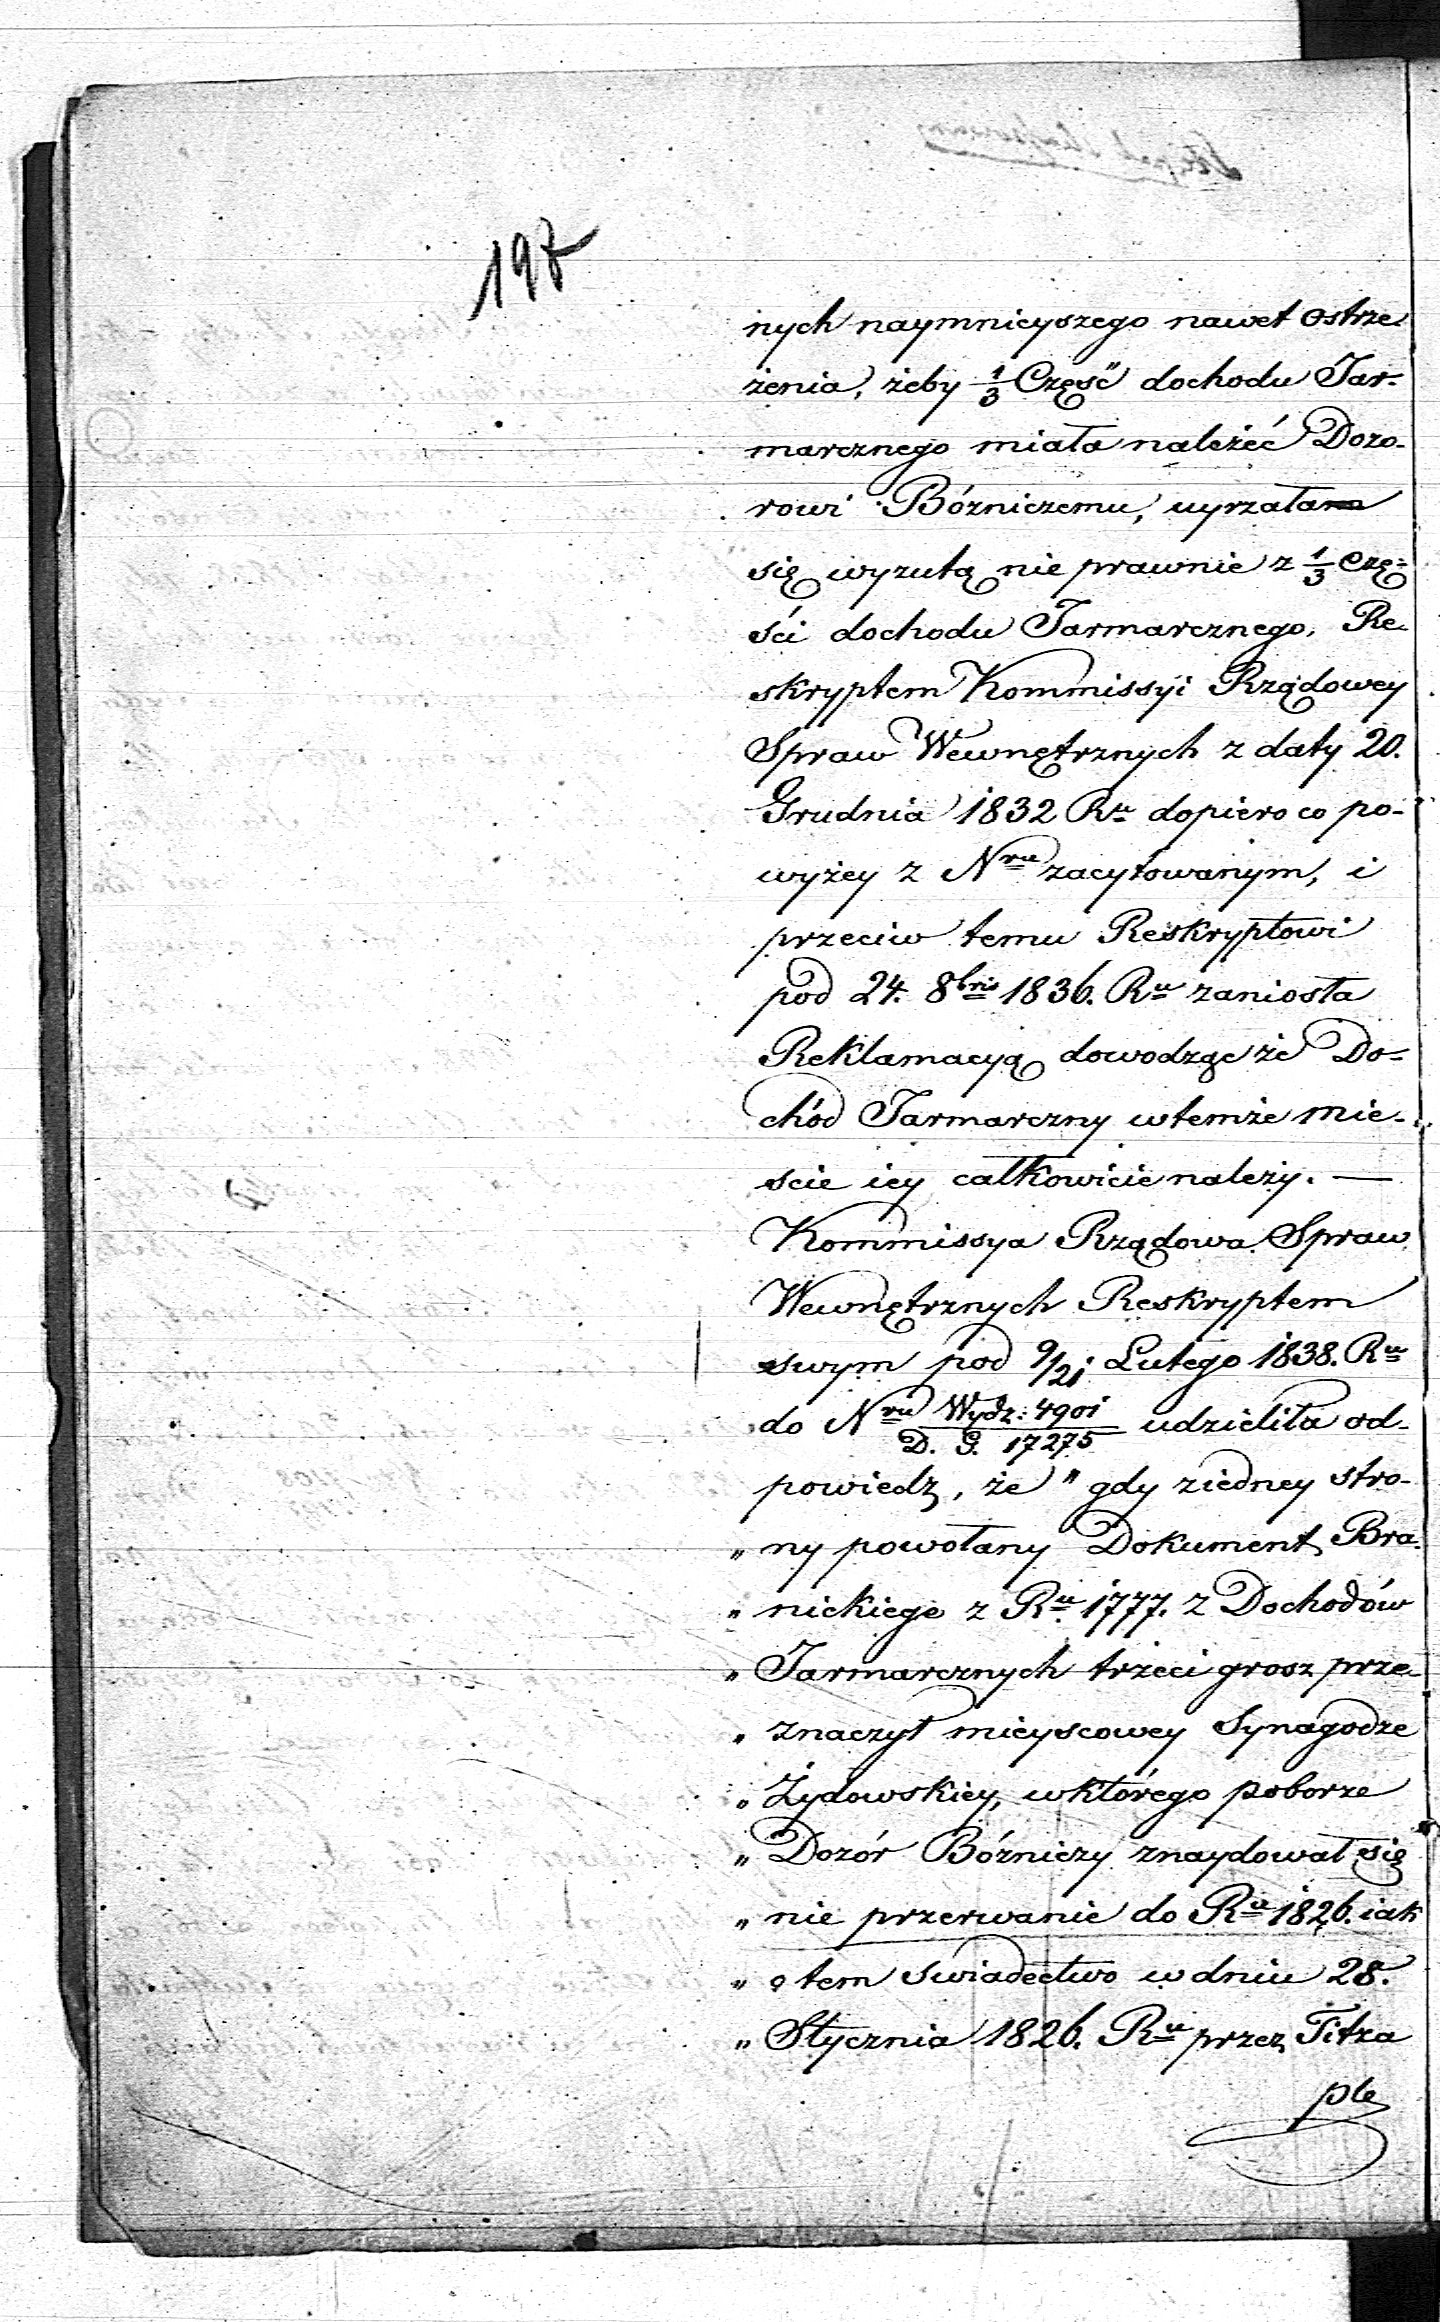 197
nych naymnieyszego nawet ostrze-
żenia, żeby 1/3 Część dochodu Jar-
marcznego miała należeć Dozo-
rowi Bózniczemu, uyrzała
się wyzutą nie prawnie z 1/3 Czę-
ści dochodu Jarmarcznego, Re-
skryptem Kommissyi Rządowey
Spraw Wewnętrznych z daty 20.
Grudnia 1832 Ru dopiero co po-
wyżey z Nru zacytowanym, i
przeciw temu Reskryptowi
pod 24. 8bris 1836. Ru zaniosła
Reklamacyą dowodząc że Do-
chód Jarmarczny wtemże mie-
scie iey całkowicie należy. —
Kommissya Rządowa Spraw
Wewnętrznych Reskryptem
swym pod 9/21 Lutego 1838. Ru
do Nru Wydz: 4901 / D. G. 17275 udzieliła od-
powiedz, że „ gdy ziedney stro-
„ ny powołany Dokument Bra-
„ nickiego z Ru 1777. z Dochodów
„ Jarmarcznych trzeci grosz prze-
„ znaczył mieyscowey Synagodze
„ Żydowskiey, wktórego poborze
„ Dozór Bózniczy znaydował się
„ nie przerwanie do Ru 1826. iak
„ o tem swiadectwo w dniu 28.
„ Stycznia 1826. Ru przez Titza